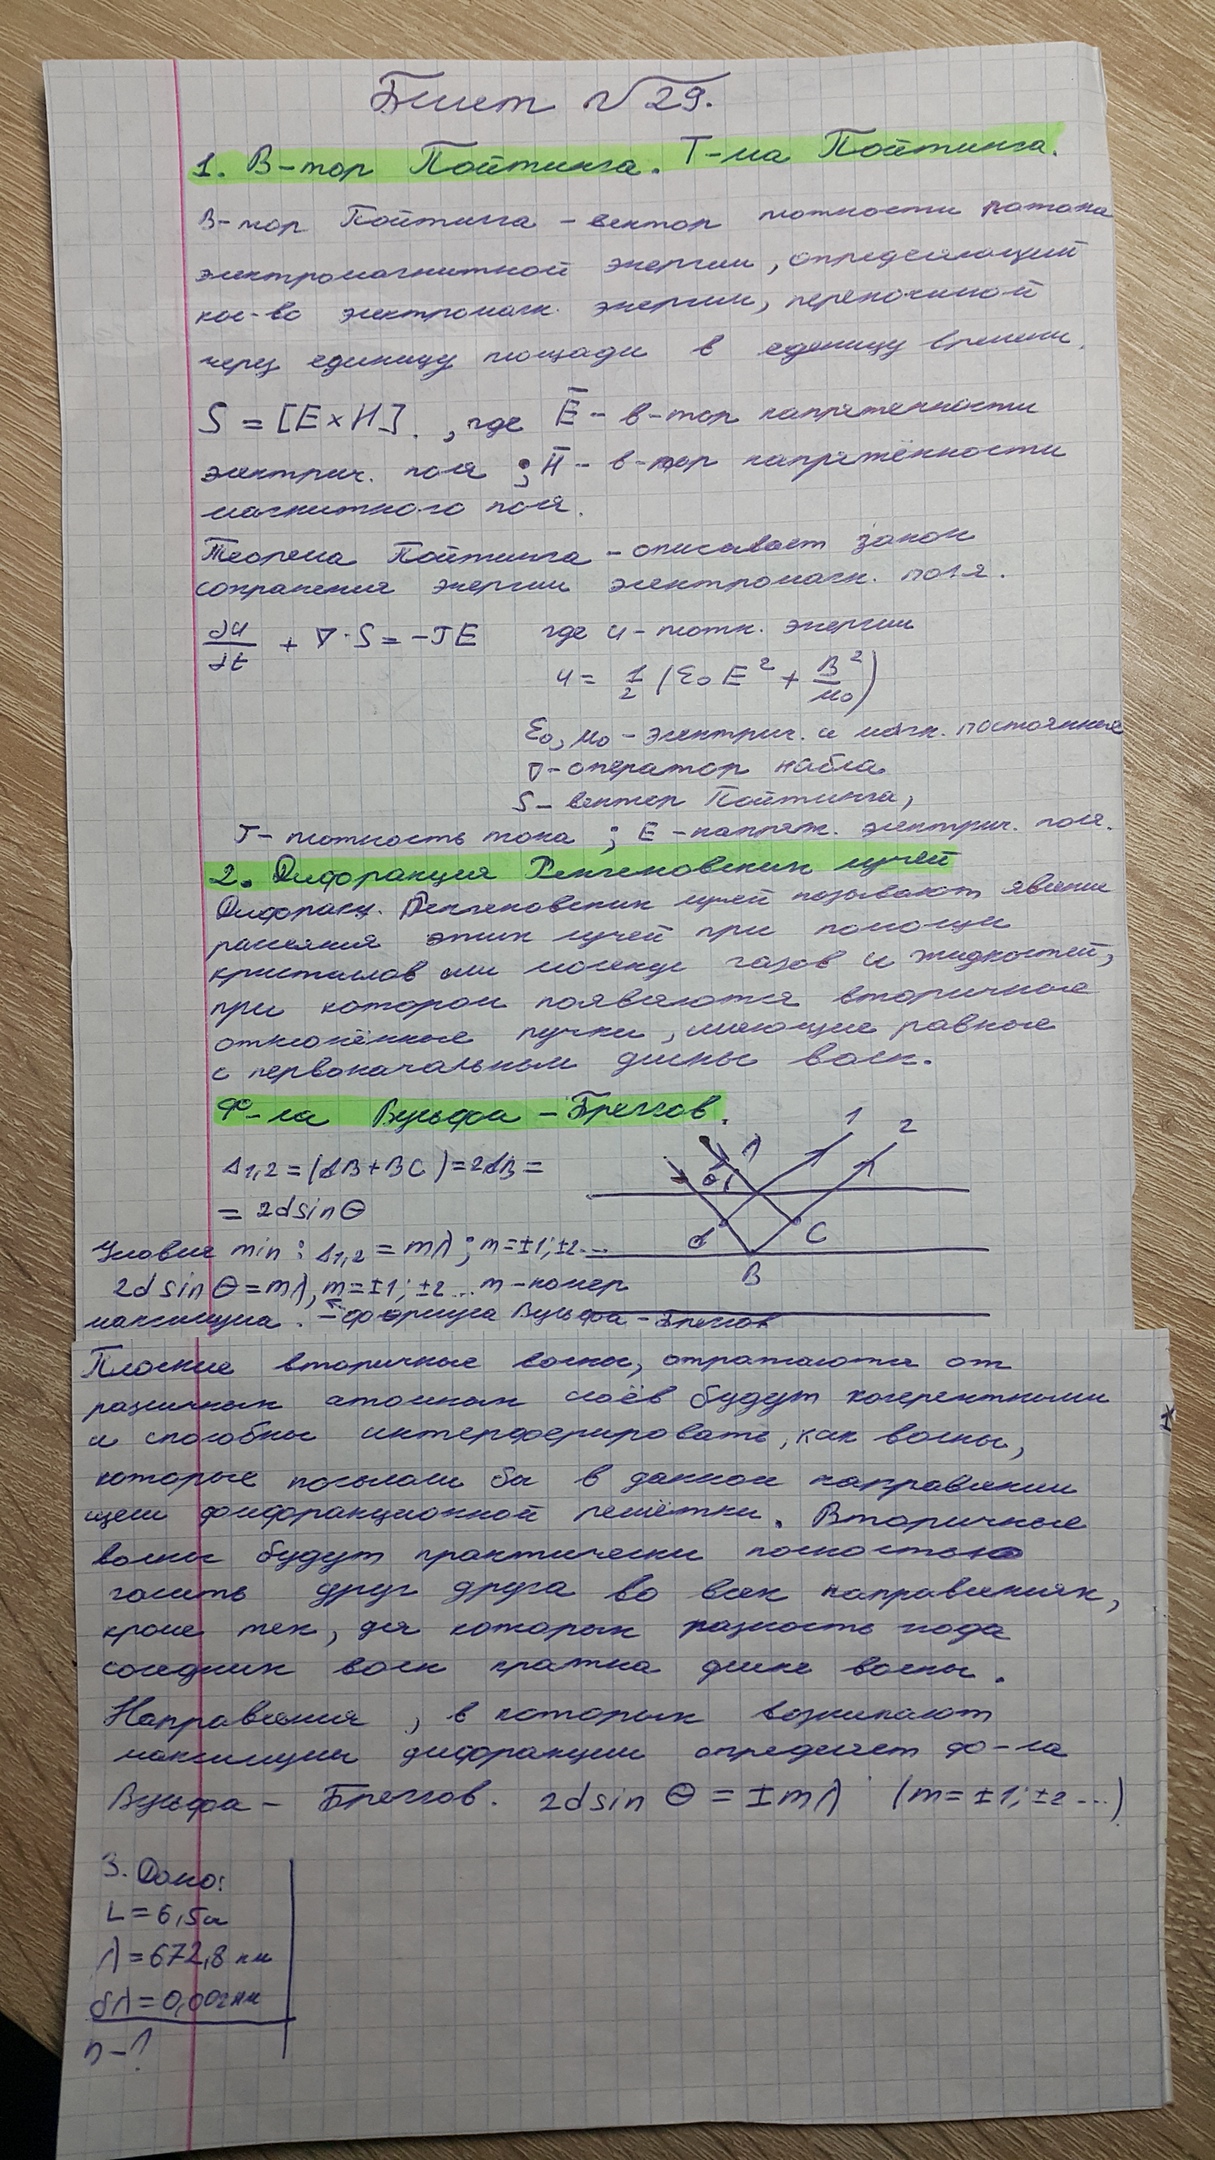 Билет №29.
1. В-тор Пойтинга. Т-ма Пойтинга.
В-тор Пойтинга – вектор плотности потока
электромагнитной энергии, определяющий
кол-во электромагн. энергии, переносимой
через единицу площади в единицу времени.
S = [E×H]. , где E̅ – в-тор напряженности
электрич. поля ; H̅ – в-тор напряжённости
магнитного поля.
Теорема Пойтинга – описывает закон
сохранения энергии электромагн. поля.
∂u/∂t + ∇·S = -JE где u – плотн. энергии
u = 1/2 (ε₀E² + B²/μ₀)
ε₀, μ₀ – электрич. и магн. постоянные
∇ – оператор набла
S – вектор Пойтинга,
J – плотность тока ; E – напряж. электрич. поля.
2. Дифракция Рентгеновских лучей
Дифракц. Рентгеновских лучей называют явление
рассеяния этих лучей при помощи
кристаллов или молекул газов и жидкостей,
при котором появляются вторичные
отклонённые пучки, имеющие равные
с первоначальным длины волн.
Ф-ла Вульфа – Брэггов.
1 2
Δ1,2 = (AB + BC) = 2AB =
= 2d sin θ
θ λ
A C
B
Условия min : Δ1,2 = mλ ; m = ±1; ±2...
2d sin θ = mλ, m = ±1; ±2... m – номер
максимума. – формула Вульфа – Брэггов
Плоские вторичные волны, отражаются от
различных атомных слоёв будут когерентными
и способны интерферировать, как волны,
которые посылали бы в данном направлении
щели дифракционной решётки. Вторичные
волны будут практически полностью
гасить друг друга во всех направлениях,
кроме тех, для которых разность хода
соседних волн кратна длине волны.
Направления, в которых возникают
максимумы дифракции определяет ф-ла
Вульфа – Брэггов. 2d sin θ = ±mλ (m = ±1; ±2 ...)
3. Дано:
L = 6,5м
λ = 672,8 нм
δλ = 0,002нм
n – ?